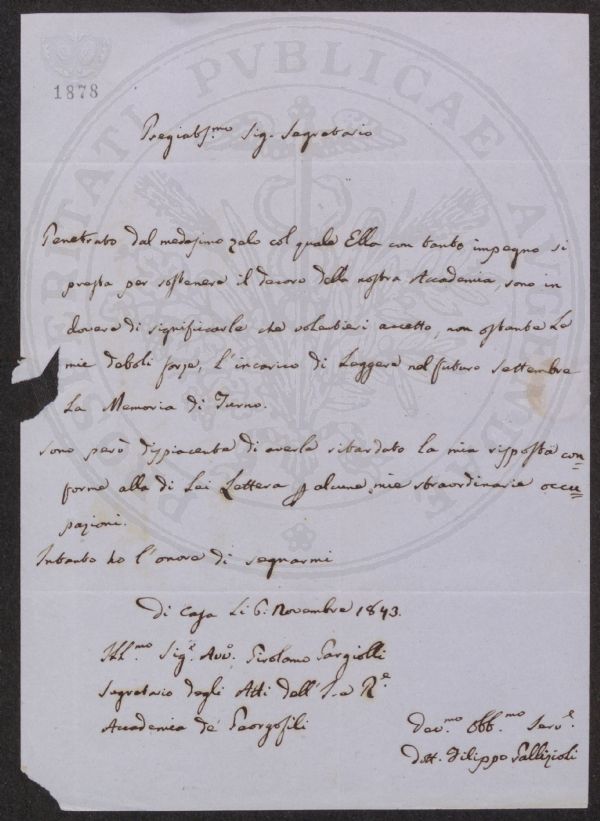 1878
PROSPERITATI PUBLICAE AUGENDAE
Pregiatis.mo Sig. Segretario
Penetrato dal medesimo zelo col quale Ella con tanto impegno si
presta per sostenere il decoro della nostra Accademia, sono in
dovere di significarle che volentieri accetto, non ostante le
mie deboli forze, l'incarico di Leggere nel futuro settembre
La Memoria di Turno.
Sono però dispiacente di averle ritardato la mia risposta con=
forme alla di Lei Lettera p alcune mie straordinarie occu=
pazioni.
Intanto ho l'onore di segnarmi
Di Casa Li 6. Novembre 1843.
Ill.mo Sig.e Avv. Girolamo Gargiolli
Segretario degli Atti dell'I. e R.e
Accademia de' Georgofili
Dev.mo Obb.mo Serv.e
Dott. Filippo Gallizioli